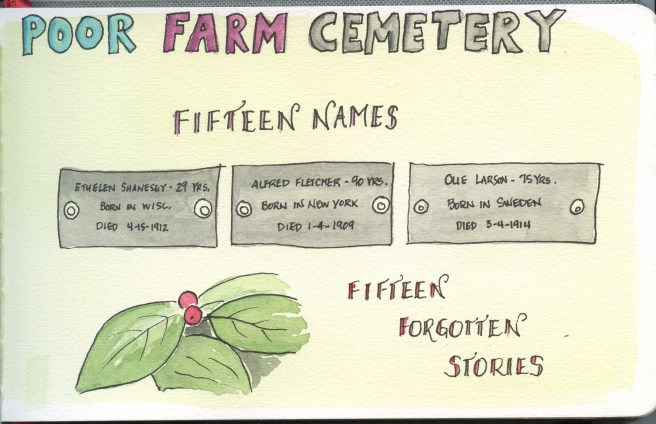 POOR FARM CEMETERY
FIFTEEN NAMES
ETHELEN SHANESEY - 29 YRS.
BORN IN WISC.
DIED 4-15-1912
ALFRED FLETCHER - 90 YRS.
BORN IN NEW YORK
DIED 1-4-1909
OLIE LARSON - 75 YRS.
BORN IN SWEDEN
DIED 3-4-1914
FIFTEEN
FORGOTTEN
STORIES